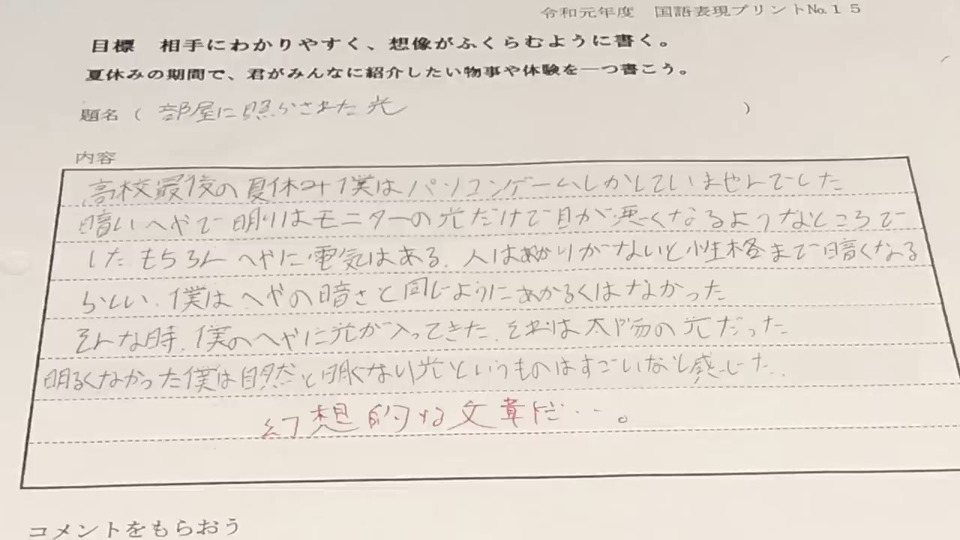 令和元年度 国語表現プリント№15
目標 相手にわかりやすく、想像がふくらむように書く。
夏休みの期間で、君がみんなに紹介したい物事や体験を一つ書こう。
題名（ 部屋に照らされた光 ）
内容
高校最後の夏休み僕はパソコンゲームしかしていませんでした
暗いへやで明りはモニターの光だけで目が悪くなるようなところで
したもちろんへやに電気はある、人はあかりがないと性格まで暗くなる
らしい、僕はへやの暗さと同じようにあかるくはなかった
そんな時、僕のへやに光が入ってきた、それは太陽の光だった
明るくなかった僕は自然と
光というものはすごいなと感じた、
幻想的な文章だ…。
コメントをもらおう